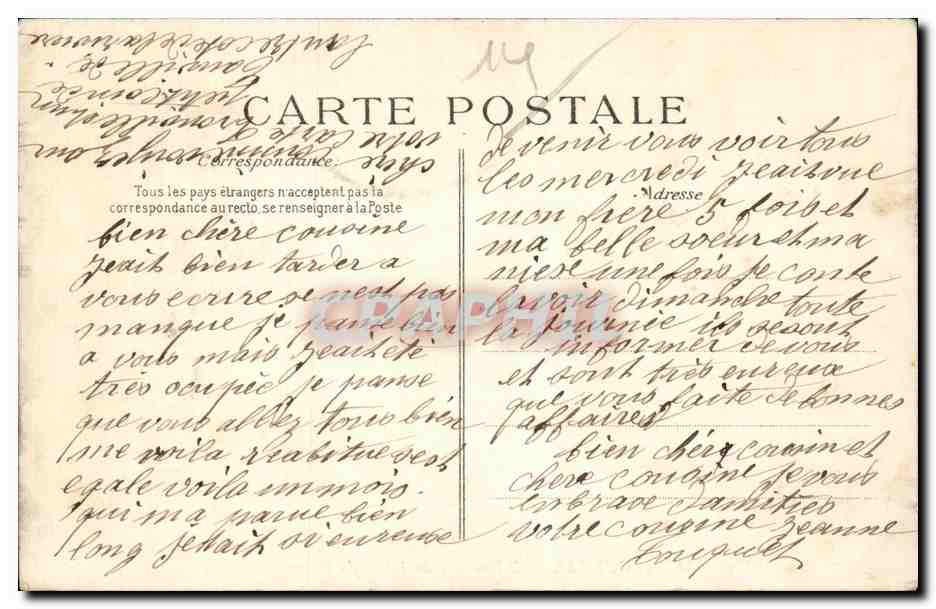 119
CARTE POSTALE
Correspondance:
Adresse
Tous les pays étrangers n'acceptent pas la
correspondance au recto, se renseigner à la Poste
bien chère cousine
jeait bien tarder a
vous ecrire se nest pas
manque je panse bien
a vous mais jeaiteté
très ocupée je panse
que vous allez tous bien
me voila reabitue sest
egale voila un mois
qui ma parue bien
long jettait si eureuse
de venir vous voir tous
les mercredi jeaitvue
mon frère 5 fois et
ma belle soeur et ma
niese une fois je conte
la voir dimanche toute
la journée ils se sont
informer de vous
et sont très eureux
que vous faite de bonnes
affaires
bien chère cousin et
chere cousine je vous
enbrase damitiés
votre cousine jeanne
Touquet
votre carte
petit coin de
lautre coté de la riviere
CRAPHIL